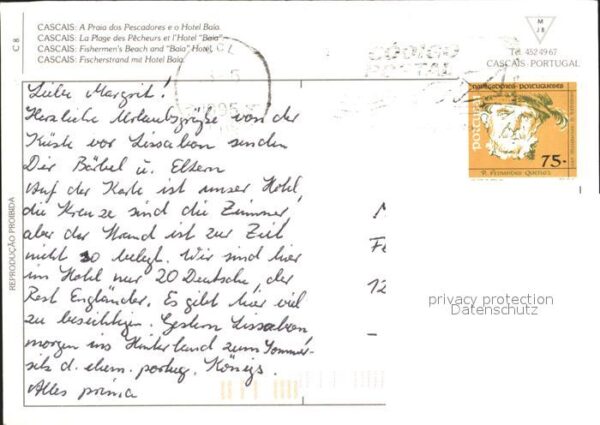 CASCAIS: A Praia dos Pescadores e o Hotel Baía.
CASCAIS: La Plage des Pêcheurs et l'Hotel "Baía".
CASCAIS: Fishermen's Beach and "Baía" Hotel.
CASCAIS: Fischerstrand mit Hotel Baía.
C 8
REPRODUÇÃO PROIBIDA
CÓDIGO
POSTAL
M
J B
Tel. 452 49 67
CASCAIS - PORTUGAL
NAVEGADORES PORTUGUESES
PORTUGAL
75.-
P. FERNANDES QUEIRÓS
Liebe Margrit!
Herzliche Urlaubsgrüße von der
Küste vor Lissabon senden
Dir Bärbel u. Eltern
Auf der Karte ist unser Hotel,
die Kreuze sind die Zimmer,
aber der Strand ist zur Zeit
nicht so belegt. Wir sind hier
im Hotel nur 20 Deutsche, der
Rest Engländer. Es gibt hier viel
zu besichtigen. Gestern Lissabon,
morgen ins Hinterland zum Sommer-
sitz d. ehem. portug. Königs.
Alles prima
Fe
12
privacy protection
Datenschutz